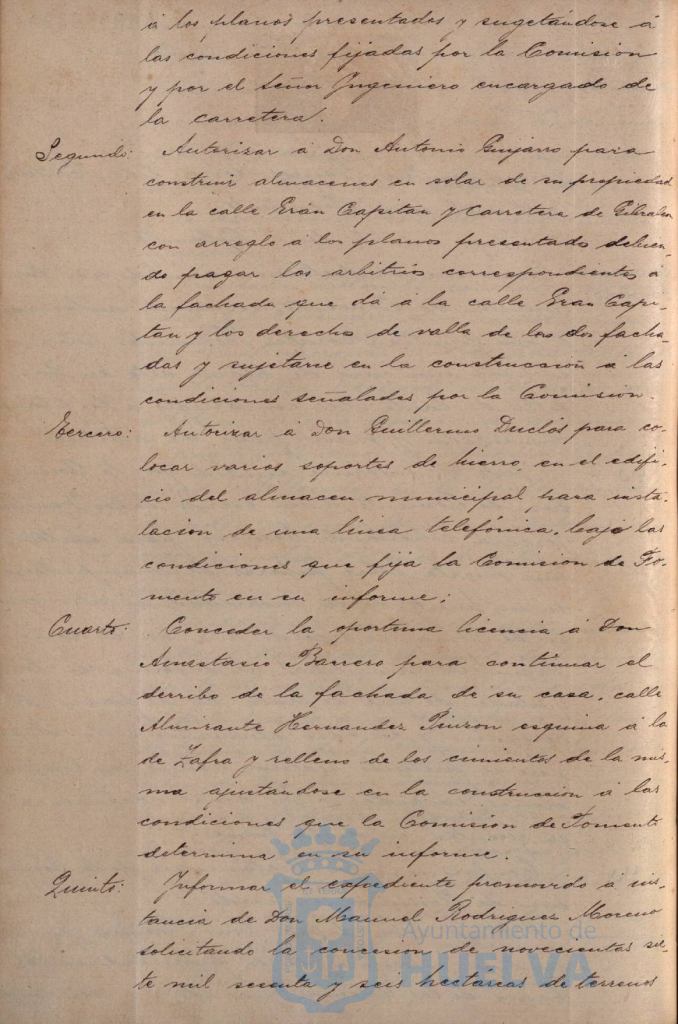 á los planos presentados y sugetándose á
las condiciones fijadas por la Comision
y por el Señor Ingeniero encargado de
la carretera.
Segundo: Autorizar á Don Antonio Guijarro para
construir almacenes en solar de su propiedad
en la calle Gran Capitan y Carretera de Gibraleon
con arreglo á los planos presentado debien-
do pagar los arbitrios correspondientes á
la fachada que dá á la calle Gran Capi-
tan y los derecho de valla de las dos facha-
das y sujetarse en la construcción á las
condiciones señaladas por la Comision.
Tercero: Autorizar á Don Guillermo Duclós para co-
locar varios soportes de hierro, en el edifi-
cio del almacen municipal para insta-
lacion de una línea telefónica, bajo las
condiciones que fija la Comision de Fo-
mento en su informe;
Cuarto: Conceder la oportuna licencia á Don
Anastasio Barrero para continuar el
derribo de la fachada de su casa, calle
Almirante Hernandez Pinzon esquina á la
de Zafra y relleno de los cimientos de la mis-
ma ajustándose en la construccion á las
condiciones que la Comision de Fomento
determina en su informe.
Quinto: Informar el expediente promovido á ins-
tancia de Don Manuel Rodriguez Moreno
solicitando la concesion de novecientas sie-
te mil sesenta y seis hectareas de terrenos
Ayuntamiento de
HUELVA